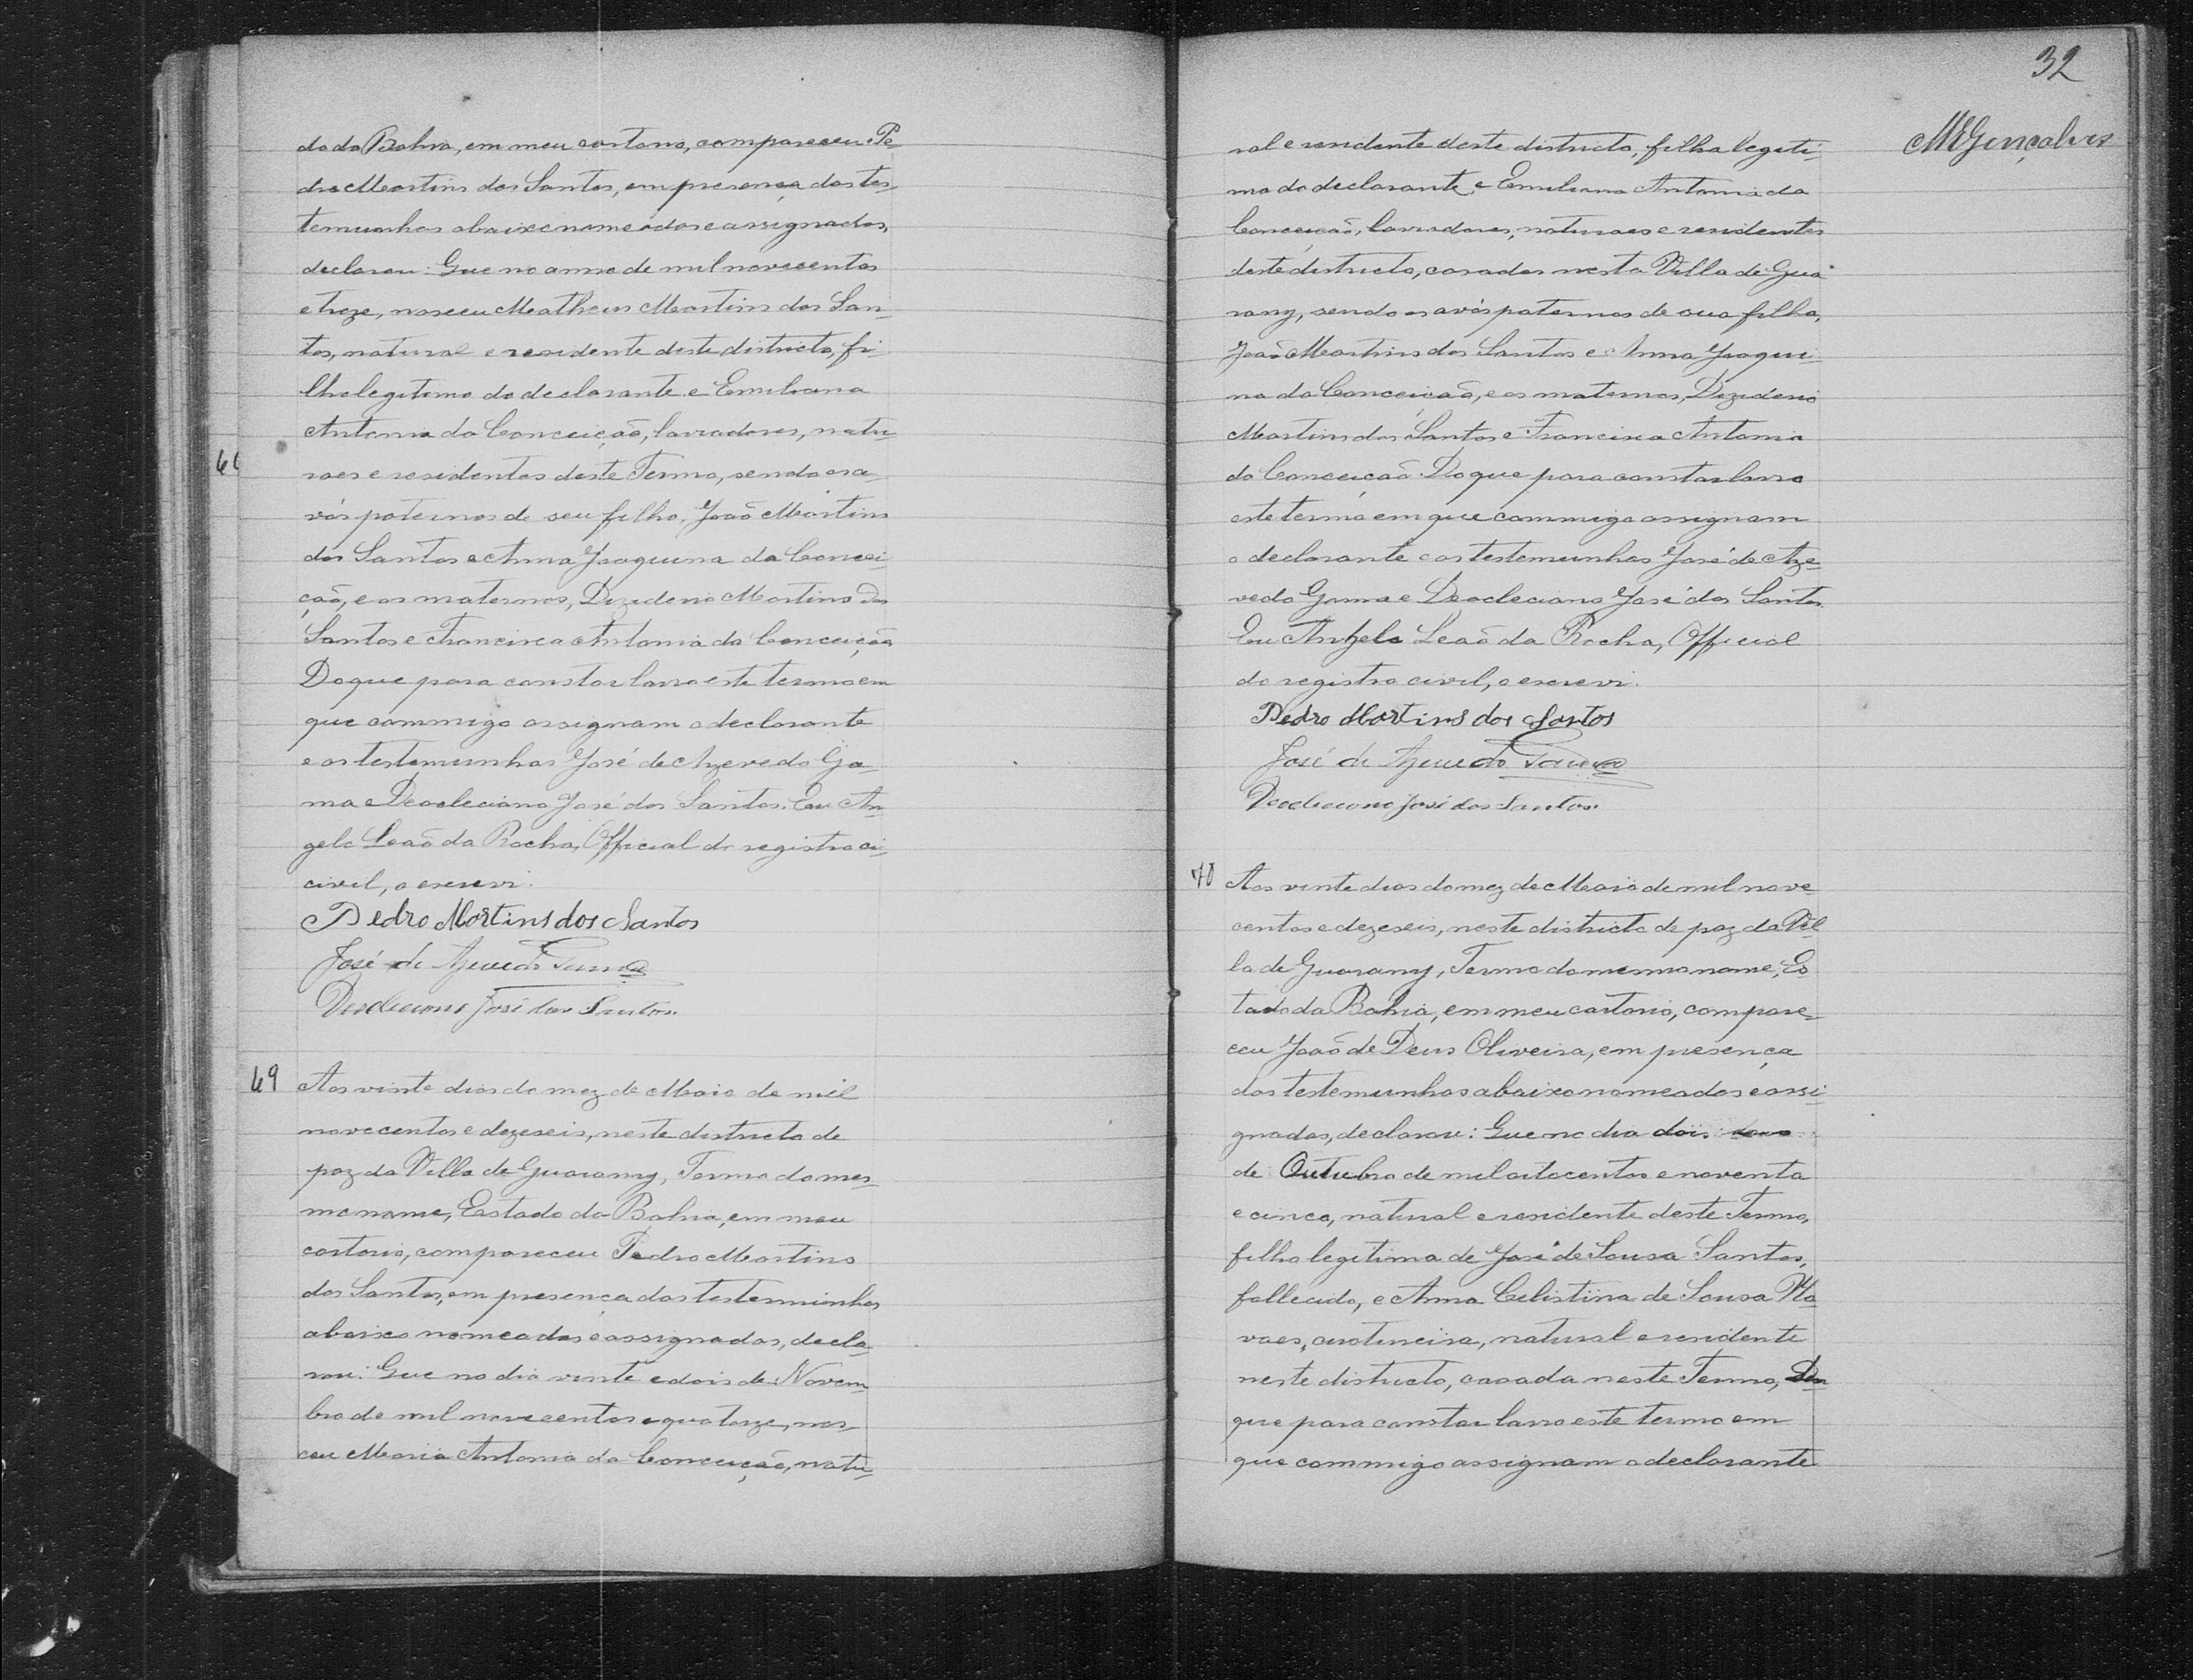 do da Bahia, em meu cartorio, compareceu Pe-
dro Martins dos Santos, em presença das tes-
temunhas abaixo nomeadas e assignadas,
declarou: Que no anno de mil novecentos
e treze, nasceu Matheus Martins dos San-
tos, natural e residente deste districto, fi-
lho legitimo do declarante e Emiliana
Antonia da Conceição, lavradores, natu-
raes e residentes deste Termo, sendo os a-
vós paternos de seu filho, João Martins
dos Santos e Anna Joaquina da Concei-
ção, e os maternos, Dizidério Martins dos
Santos e Francisca Antonia da Conceição
Do que para constar lavro este termo em
que commigo assignam o declarante
e as testemunhas José de Azevedo Ga-
ma e Deocleciano José dos Santos. Eu An-
gelo Leão da Rocha, Official do registro ci-
civil, o escrevi.
Pedro Martins dos Santos
José de Azevedo Gama
Deocleciano José dos Santos.
69 Aos vinte dias do mez de Maio de mil
novecentos e dezeseis, neste districto de
paz da Villa de Guarany, Termo do mes-
mo nome, Estado da Bahia, em meu
cartorio, compareceu Pedro Martins
dos Santos, em presença das testemunhas
abaixo nomeadas e assignadas, decla-
rou: Que no dia vinte e dois de Novem-
bro de mil novecentos e quatorze, nas-
ceu Maria Antonia da Conceição, natu-
32
MRGonçalves
ral e residente deste districto, filha legiti-
ma do declarante e Emiliana Antonia da
Conceição, lavradores, naturaes e residentes
deste districto, casados nesta Villa de Gua-
rany, sendo os avós paternos de sua filha,
João Martins dos Santos e Anna Joaqui-
na da Conceição, e os maternos, Dizidério
Martins dos Santos e Francisca Antonia
da Conceição. Do que para constar lavro
este termo em que commigo assignam
o declarante e as testemunhas José de Aze-
vedo Gama e Deocleciano José dos Santos.
Eu Angelo Leão da Rocha, Official
do registro civil, o escrevi.
Pedro Martins dos Santos
José de Azevedo Gama
Deocleciano José dos Santos.
70 Aos vinte dias do mez de Maio de mil nove-
centos e dezeseis, neste districto de paz da Vil
la de Guarany, Termo do mesmo nome, Es
tado da Bahia, em meu cartorio, compare-
ceu João de Deus Oliveira, em presença
das testemunhas abaixo nomeadas e assi-
gnadas, declarou: Que no dia dois
de Outubro de mil oitocentos e noventa
e cinco, natural e residente deste Termo,
filho legitimo de José de Sousa Santos,
fallecido, e Anna Celistina de Sousa No
vaes, costureira, natural e residente
neste districto, casada neste Termo, Do
que para constar lavro este termo em
que commigo assignam o declarante